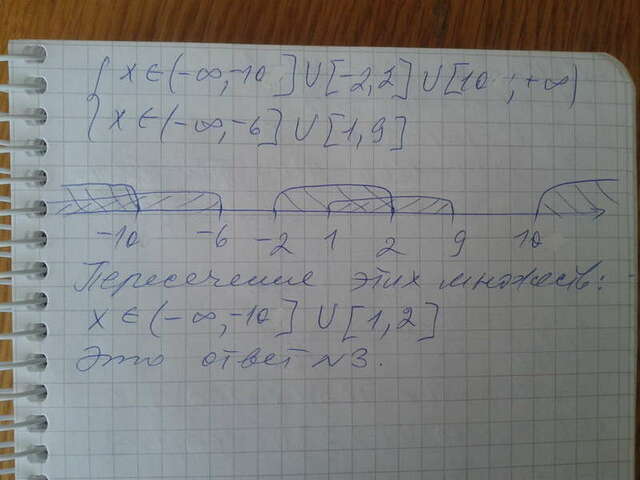 { x ∈ (-∞, -10] ∪ [-2, 2] ∪ [10; +∞)
x ∈ (-∞, -6] ∪ [1, 9]
-10 -6 -2 1 2 9 10
Пересечение этих множеств:
x ∈ (-∞, -10] ∪ [1, 2]
Это ответ №3.